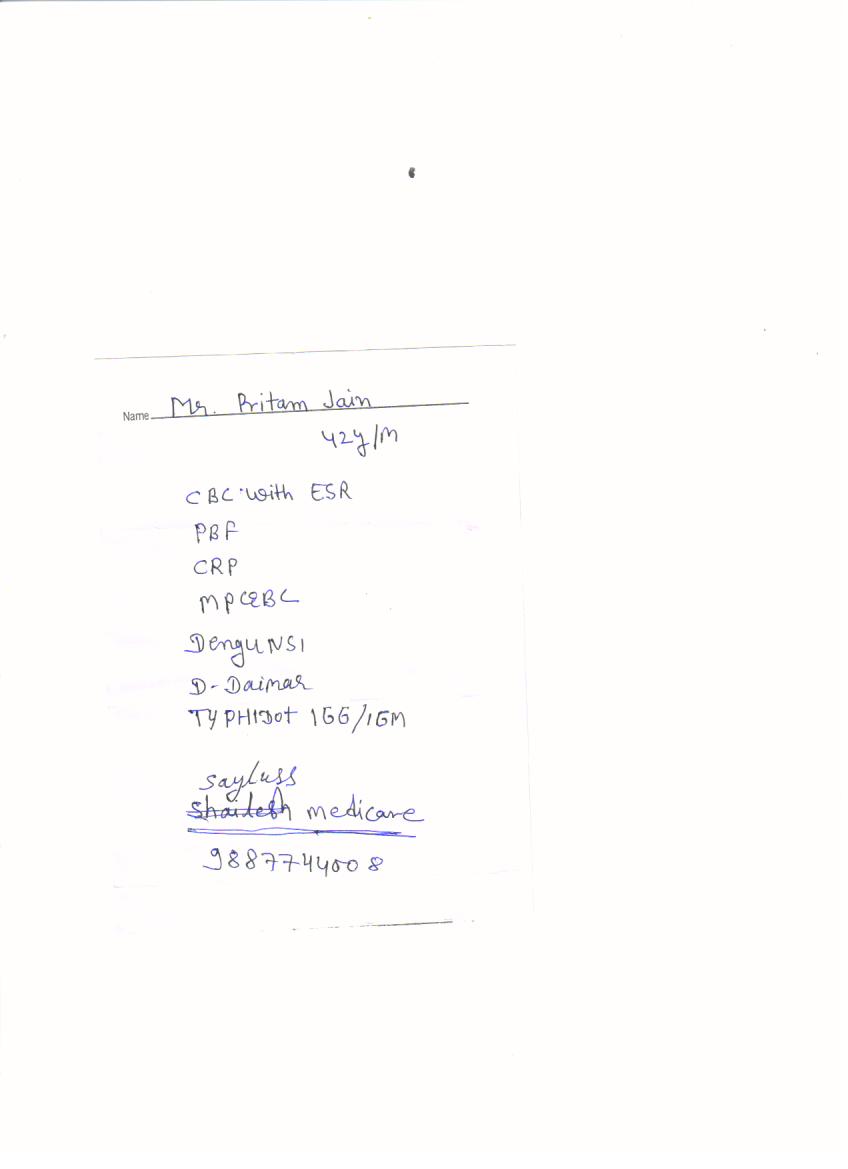 Name Mr. Pritam Jain
42y/M
CBC with ESR
PBF
CRP
MPQBC
Dengu NS1
D-Daimar
TYPHIDOT IGG/IGM
Sayluss
Shailesh medicare
9887744008